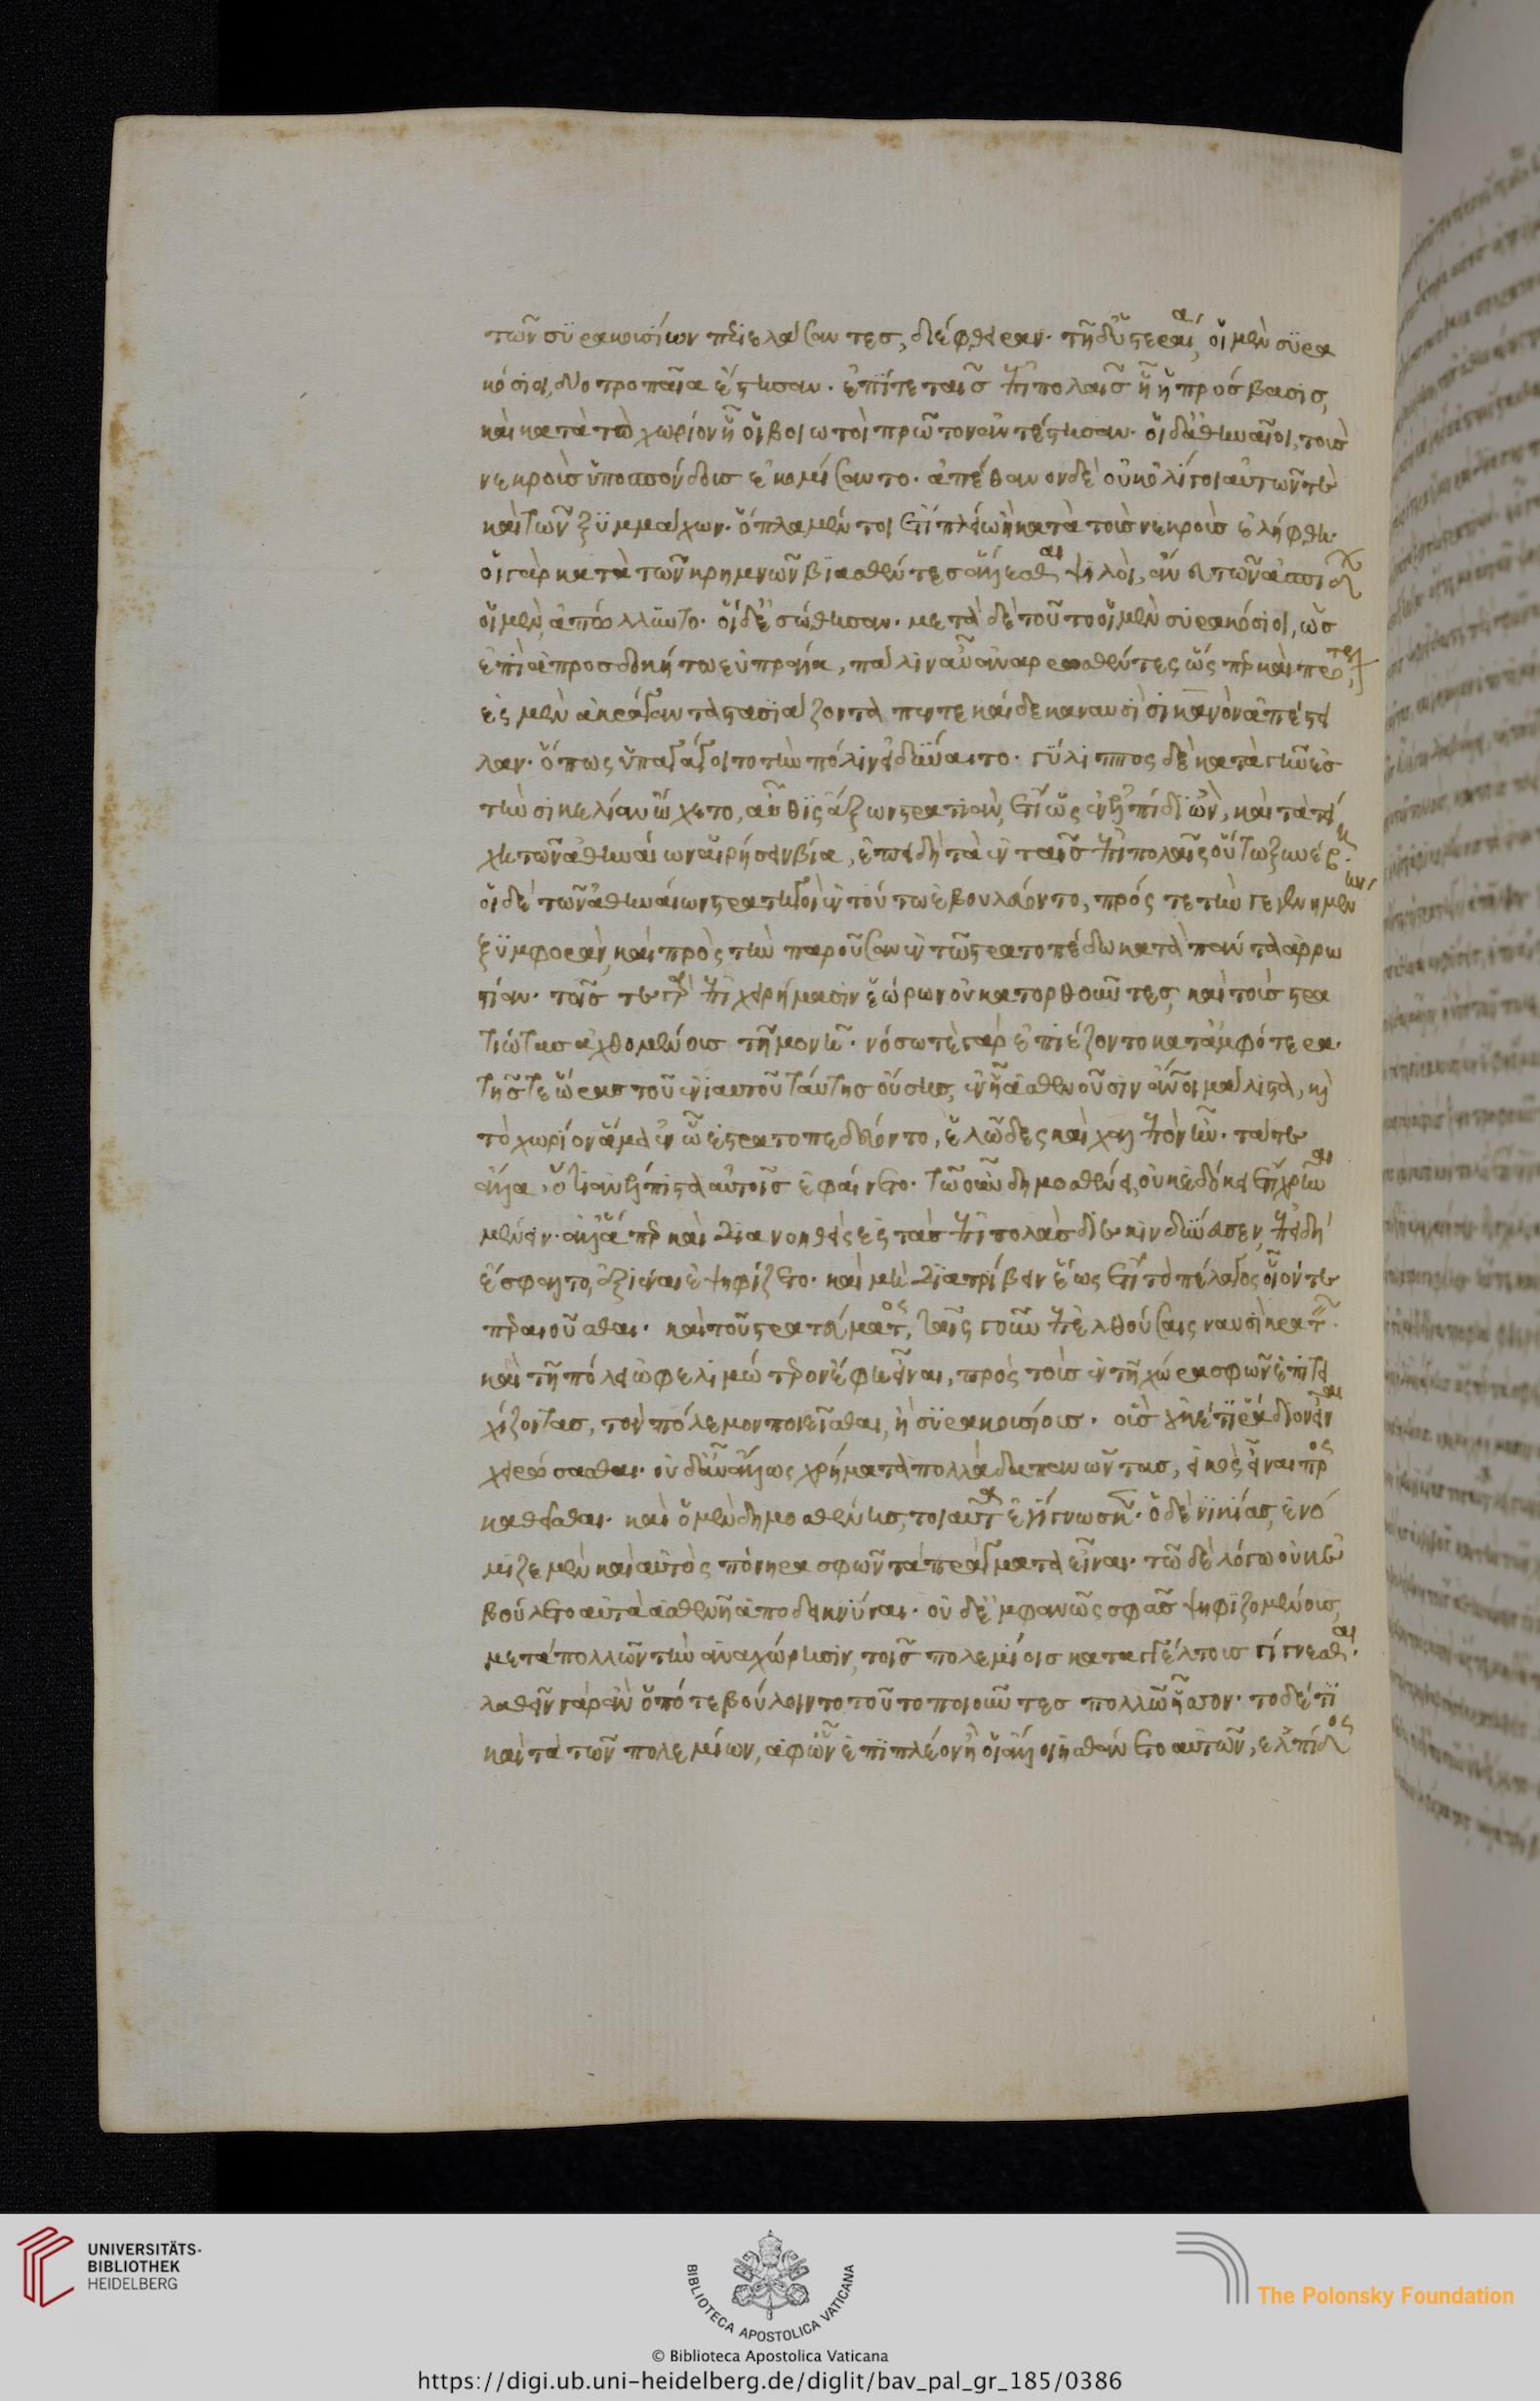 τῶν συρακοσίων περιελάσαντες, διέφθειραν. τῆ δ' ὑστεραία, οἱ μὲν συρα
κόσιοι, δύο τροπαῖα ἔστησαν. ἐπί τε ταῖς ἐπιπολαῖς ἧ ἡ πρόσβασις,
καὶ κατὰ τὸ χωρίον ἧ οἱ βοιωτοὶ πρῶτον ἀντέστησαν. οἱ δ' ἀθηναῖοι, τοὺς
νεκροὺς ὑποσπόνδους ἐκομίσαντο. ἀπέθανον δὲ οὐκ ὀλίγοι αὐτῶν τε
καὶ τῶν ξυμμάχων. ὅπλα μέντοι ἔτι πλείω ἢ κατὰ τοὺς νεκροὺς ἐλήφθη.
οἱ γὰρ κατὰ τῶν κρημνῶν βιασθέντες ἅλλεσθαι ψιλοὶ, ἄνευ τῶν ἀσπίδων
οἱ μὲν, ἀπώλλυντο. οἱ δ' ἐσώθησαν. μετὰ δὲ τοῦτο οἱ μὲν συρακόσιοι, ὡς
ἐπὶ ἀπροσδοκήτω εὐπραγία, πάλιν αὖ ἀναρρωσθέντες ὥσπερ καὶ πρότερον,
ἐς μὲν ἀκράγαντα στασιάζοντα πεντεκαίδεκα ναυσὶ σικανὸν ἀπέστει
λαν. ὅπως ὑπαγάγοιτο τὴν πόλιν εἰ δύναιτο. γύλιππος δὲ κατὰ γῆν ἐς
τὴν σικελίαν ὤχετο, αὖθις ἄξων στρατιὰν, ἔτι ὡς ἐν ἐλπίδι ὢν, καὶ τὰ τεί
χη τῶν ἀθηναίων αἱρήσειν βία, ἐπειδὴ τὰ ἐν ταῖς ἐπιπολαῖς οὕτω ξυνέβη.
οἱ δὲ τῶν ἀθηναίων στρατηγοὶ ἐν τούτω ἐβουλεύοντο, πρός τε τὴν γεγενημένην
ξυμφορὰν, καὶ πρὸς τὴν παροῦσαν ἐν τῶ στρατοπέδω κατὰ πάντα ἀρρω
στίαν. τοῖς τε γὰρ ἐπιχειρήμασιν ἑώρων οὐ κατορθοῦντες, καὶ τοὺς στρα
τιώτας ἀχθομένους τῆ μονῆ. νόσω τε γὰρ ἐπιέζοντο κατ' ἀμφότερα.
τῆς τε ὥρας τοῦ ἐνιαυτοῦ ταύτης οὔσης, ἐν ἧ ἀσθενοῦσιν ἄνθρωποι μάλιστα, καὶ
τὸ χωρίον ἅμα ἐν ὧ ἐστρατοπεδεύοντο, ἑλῶδες καὶ χαλεπὸν ἦν. τά τε
ἄλλα, ὅτι ἀνέλπιστα αὐτοῖς ἐφαίνετο. τῶ οὖν δημοσθένει, οὐκ ἐδόκει ἔτι χρῆναι
μένειν. ἀλλ' ἅπερ καὶ διανοηθεὶς ἐς τὰς ἐπιπολὰς διεκινδύνευσεν, ἐπειδὴ
ἔσφαλτο, ἐξιέναι ἐψηφίζετο. καὶ μὴ διατρίβειν ἕως ἔτι τὸ πέλαγος οἷόν τε
περαιοῦσθαι. καὶ τοῦ στρατεύματος, ταῖς γοῦν ἐπελθούσαις ναυσὶ κρατεῖν.
καὶ τῆ πόλει ὠφελιμώτερον ἔφη εἶναι, πρὸς τοὺς ἐν τῆ χώρα σφῶν ἐπιτει
χίζοντας, τὸν πόλεμον ποιεῖσθαι, ἢ συρακοσίους. οὓς οὐκέτι ῥάδιον εἶναι
χειρώσασθαι. οὐδ' αὖ ἄλλως χρήματα πολλὰ δαπανῶντας, εἰκὸς εἶναι προς
καθῆσθαι. καὶ ὁ μὲν δημοσθένης, τοιαῦτα ἐγίγνωσκεν. ὁ δὲ νικίας, ἐνό
μιζε μὲν καὶ αὐτὸς πόνηρα σφῶν τὰ πράγματα εἶναι. τῶ δὲ λόγω οὐκ ἐ
βούλετο αὐτὰ ἀσθενῆ ἀποδεικνύναι. οὐδ' ἐμφανῶς σφᾶς ψηφιζομένους,
μετὰ πολλῶν τὴν ἀναχώρησιν, τοῖς πολεμίοις καταγγέλτους γίγνεσθαι.
λαθεῖν γὰρ ἂν ὁπότε βούλοιντο τοῦτο ποιοῦντες πολλῶ ἧσσον. τὸ δέ τι
καὶ τὰ τῶν πολεμίων, ἀφ' ὧν ἐπὶ πλέον ἢ οἱ ἄλλοι ἠσθάνετο αὐτῶν, ἐλπίδος
UNIVERSITÄTS-
BIBLIOTHEK
HEIDELBERG
BIBLIOTECA APOSTOLICA VATICANA
The Polonsky Foundation
© Biblioteca Apostolica Vaticana
https://digi.ub.uni-heidelberg.de/diglit/bav_pal_gr_185/0386